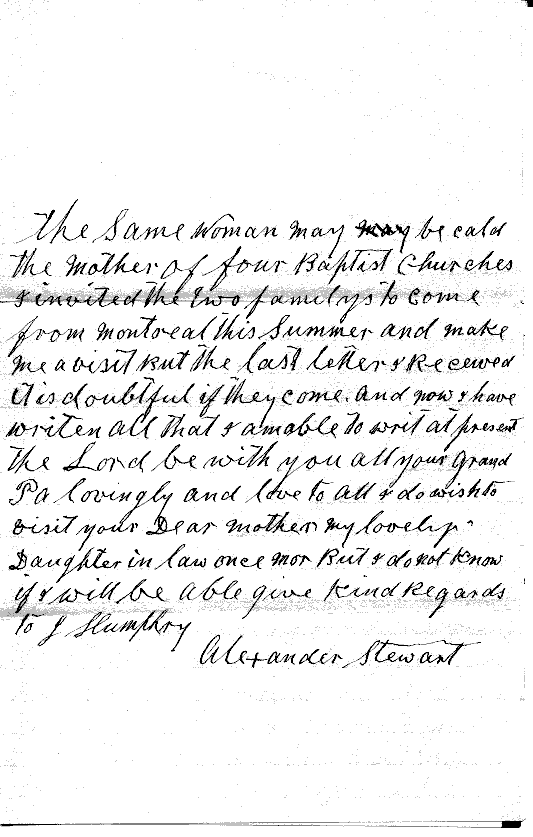 the Same woman may may be cald
the mother of four Baptist Churches
I invited the two familys to come
from montoreal this Summer and make
me a visit But the last letter I Received
it is doubtful if they come. and now I have
writen all that I am able to writ at present
the Lord be with you all your Grand
Pa lovingly and love to all I do wish to
visit your Dear mother my lovely
Daughter in law once mor But I do not know
if I will be able give Kind Regards
to J Humphry
Alexander Stewart